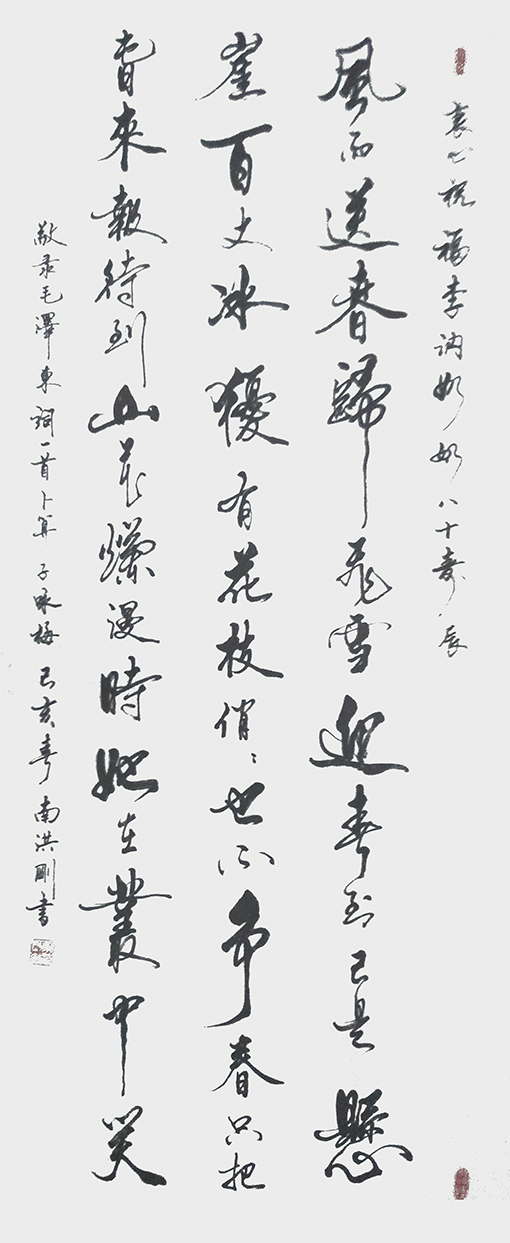 衷心祝福李讷妈妈八十寿辰
風雨送春歸飛雪迎春到已是懸
崖百丈冰猶有花枝俏〻也不争春只把
春來報待到山花爛漫時她在叢中笑
敬录毛澤東詞一首卜算子咏梅己亥春南洪剛書